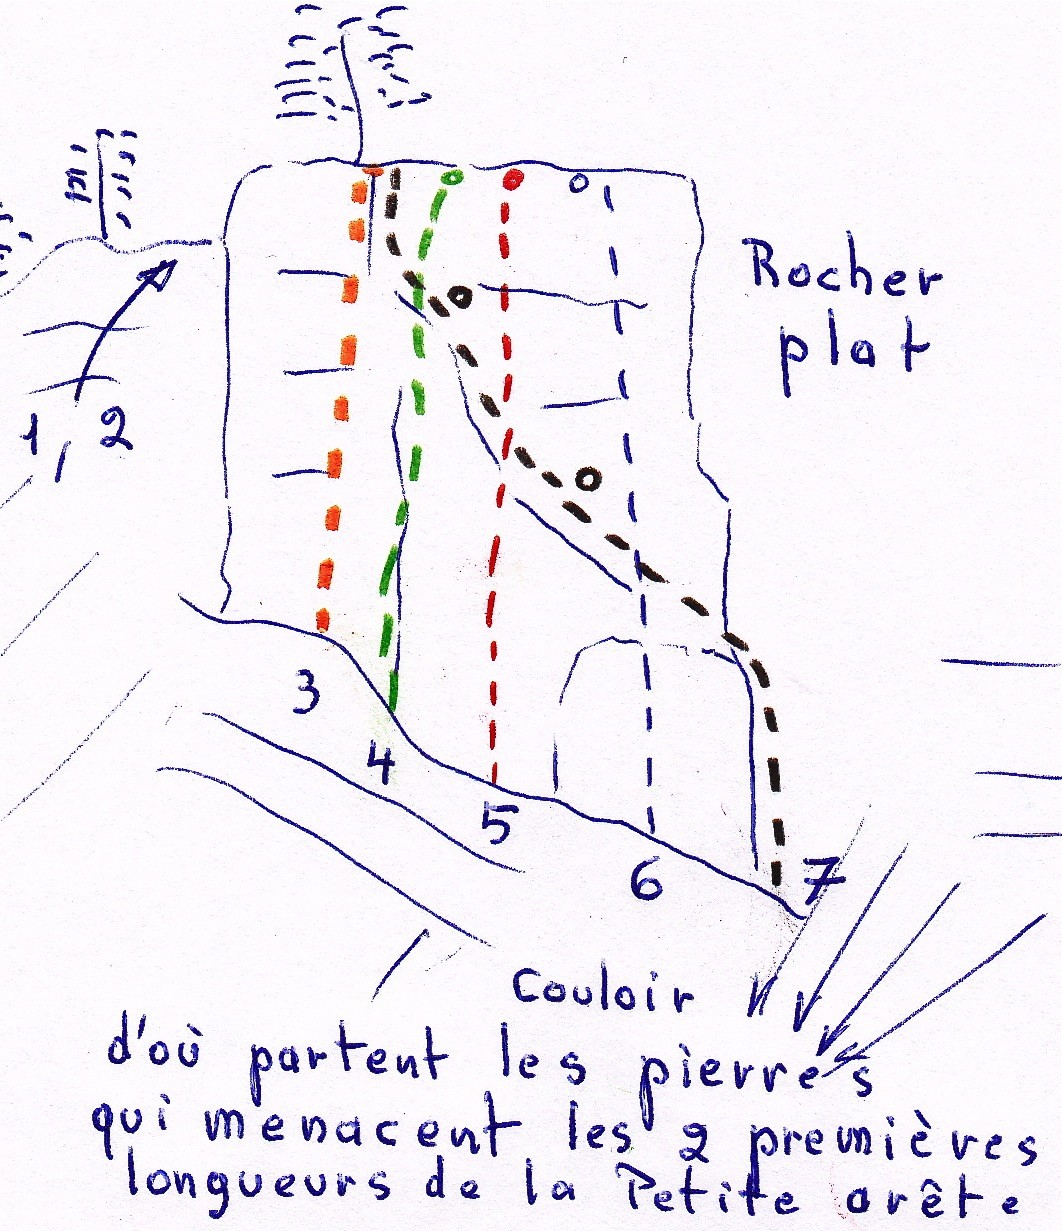 Rocher
plat
1, 2
3
4
5
6
7
Couloir
d'où partent les pierres
qui menacent les 2 premières
longueurs de la Petite arête